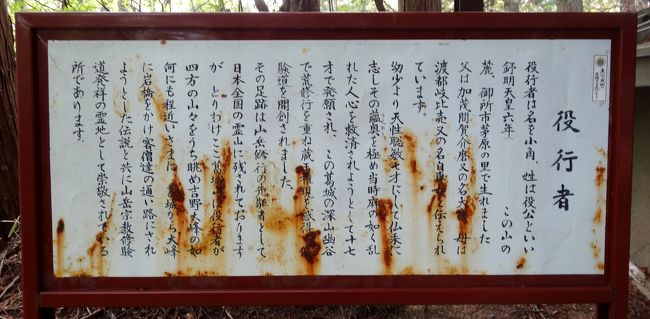 役行者
役行者は名を小角、姓は役公といい
舒明天皇六年 この山の
麓、御所市茅原の里で生れました
父は加茂間賀介麿又の名大 母は
渡都岐比売又の名白専女と伝えられ
ています。
幼少より天性聡敏 才にして仏乗に
志しその蘊奥を極め当時麻の如く乱
れた人心を救済されようとして十七
才で発願され、この葛城の深山幽谷
で荒修行を重ね蔵王権現を感得
験道を開創されました
その足跡は山岳修行の先駆者として
日本全国の霊山に残されております
が とりわけここ 役行者が
四方の山々をうち眺め吉野大峰の如
何にも程近いさまに 城から大峰
に岩橋をかけ客僧達の通い路にされ
ようとした伝説と共に山岳宗教修験
道発祥の霊地として崇敬されている
所であります。